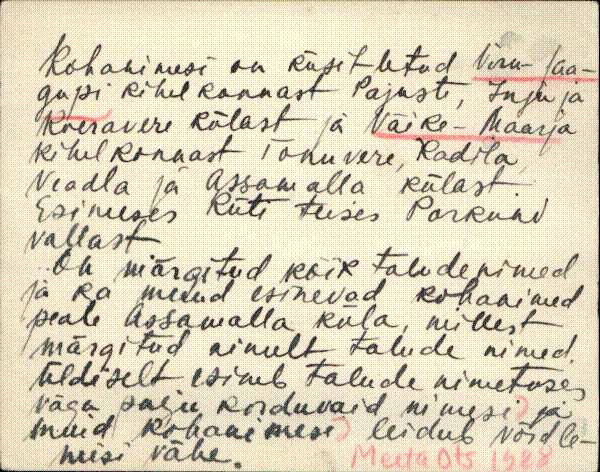 Kohanimesi on küsitletud Viru-Jaa-
gupi kihelkonnast Pajusti, Inju ja
Koeravere külast ja Väike-Maarja
kihelkonnast Tõnuvere, Kadila,
Veadla ja Assamalla külast.
Esimeses Küti teises Porkuni
vallast
On märgitud kõik taludenimed
ja ka muud esinevad kohanimed
peale Assamalla küla, millest
märgitud ainult talude nimed.
Üldiselt esineb talude nimetuses
väga palju korduvaid nimesi ja
muid kohanimesi leidub võrdle-
misi vähe.
Meeta Ots 1928